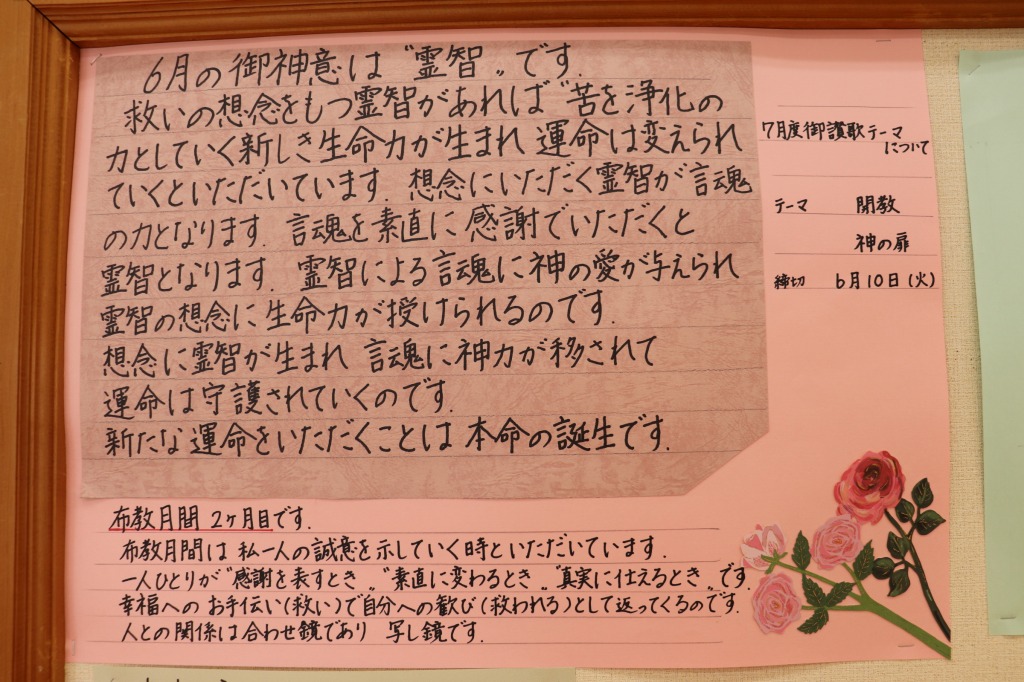 6月の御神意は〝霊智〟です.
救いの想念をもつ霊智があれば〝苦を浄化の
力としていく新しき生命力が生まれ 運命は変えられ
ていくといただいています. 想念にいただく霊智が言魂
の力となります. 言魂を素直に感謝でいただくと
霊智となります. 霊智による言魂に神の愛が与えられ
霊智の想念に生命力が授けられるのです.
想念に霊智が生まれ 言魂に神力が移されて
運命は守護されていくのです.
新たな運命をいただくことは 本命の誕生です.
布教月間 2ヶ月目です.
布教月間は 私一人の誠意を示していく時といただいています.
一人ひとりが〝感謝を表すとき〟〝素直に変わるとき〟〝真実に仕えるとき〟です.
幸福への お手伝い(救い)で自分への歓び(救われる)として返ってくるのです.
人との関係は合わせ鏡であり 写し鏡です.
7月度御讃歌テーマ
について
テーマ 開教
神の扉
締切 6月10日(火)